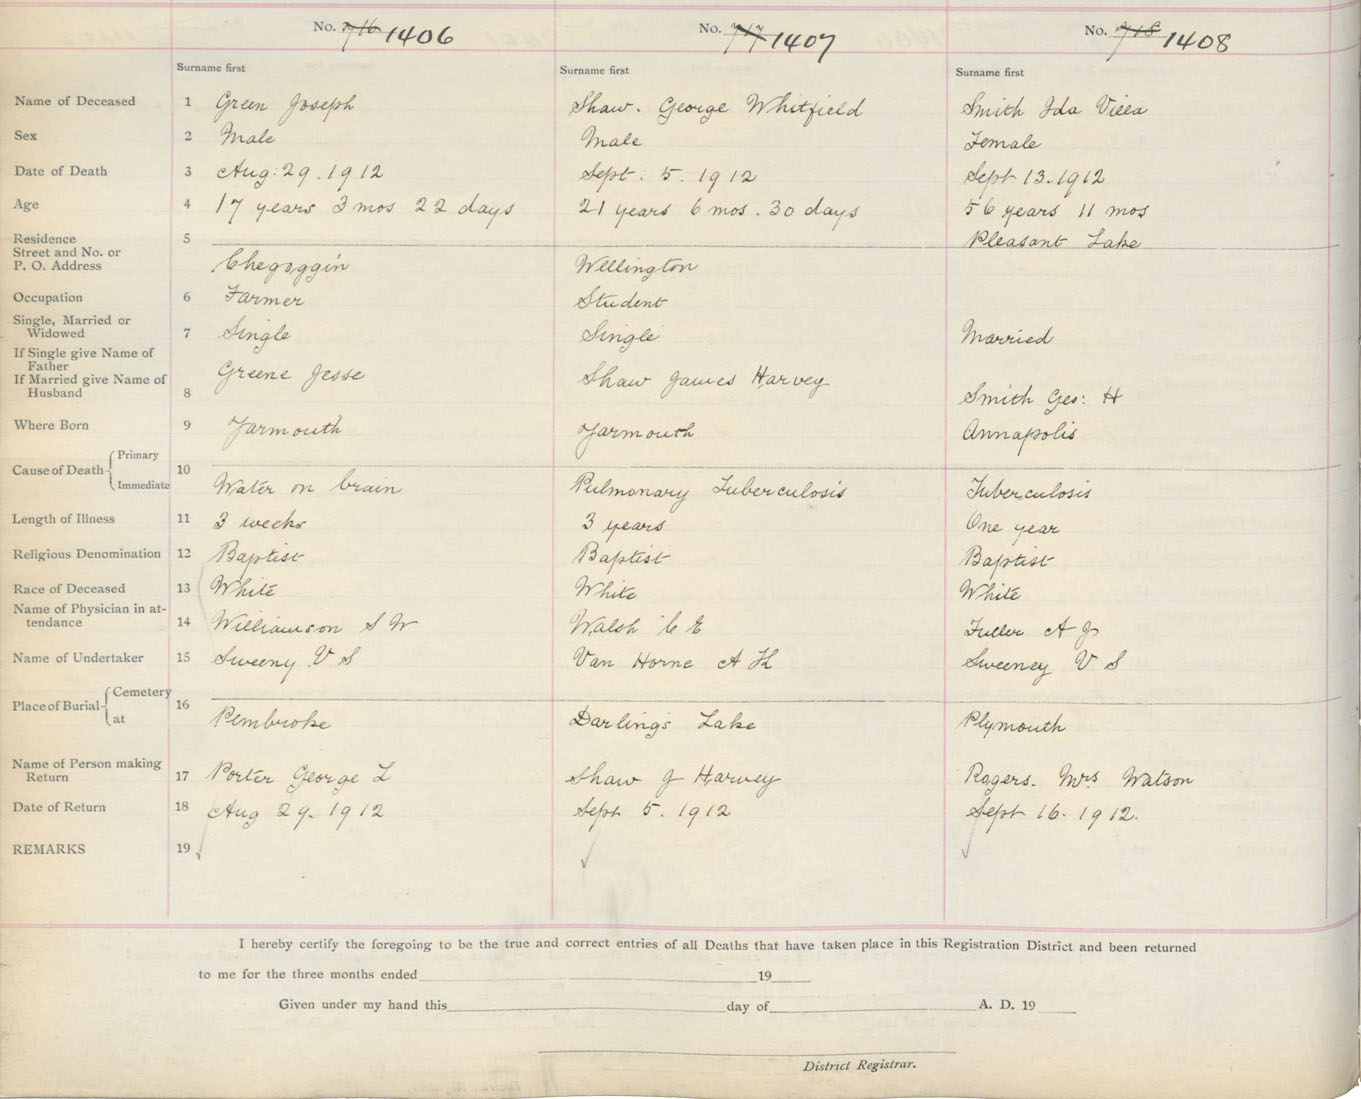 No. 716 1406 No. 717 1407 No. 718 1408
Surname first Surname first Surname first
Name of Deceased 1 Green Joseph Shaw. George Whitfield Smith Ida Villa
Sex 2 Male Male Female
Date of Death 3 Aug: 29. 1912 Sept. 5. 1912 Sept 13. 1912
Age 4 17 years 3 mos 22 days 21 years 6 mos. 30 days 56 years 11 mos
Residence 5 Pleasant Lake
Street and No. or
P. O. Address Chegoggin Wellington
Occupation 6 Farmer Student
Single, Married or
Widowed 7 Single Single Married
If Single give Name of
Father Greene Jesse Shaw James Harvey
If Married give Name of
Husband 8 Smith Geo: H
Where Born 9 Yarmouth Yarmouth Annapolis
Cause of Death Primary 10
Immediate Water on brain Pulmonary Tuberculosis Tuberculosis
Length of Illness 11 3 weeks 3 years One year
Religious Denomination 12 Baptist Baptist Baptist
Race of Deceased 13 White White White
Name of Physician in at-
tendance 14 Williamson S W Walsh C E Fuller A J
Name of Undertaker 15 Sweeny V S Van Horne A H Sweeney V S
Place of Burial Cemetery 16
at Pembroke Darlings Lake Plymouth
Name of Person making
Return 17 Porter George L Shaw J Harvey Rogers. Mrs Watson
Date of Return 18 Aug 29. 1912 Sept 5. 1912 Sept 16. 1912.
REMARKS 19
I hereby certify the foregoing to be the true and correct entries of all Deaths that have taken place in this Registration District and been returned
to me for the three months ended 19
Given under my hand this day of A. D. 19
District Registrar.